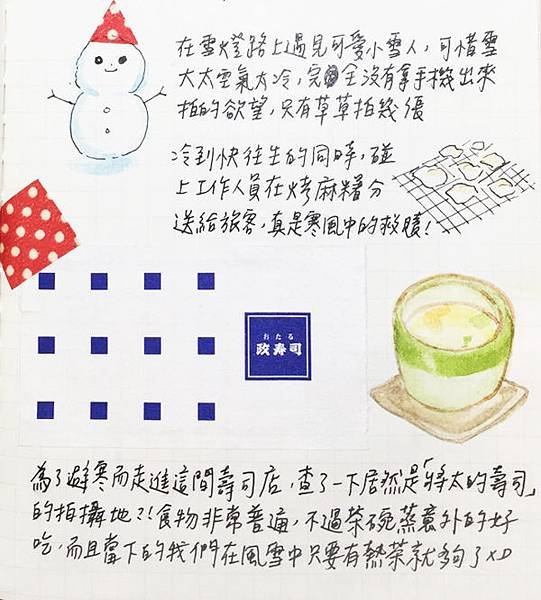 在雪燈路上遇見可愛小雪人,可惜雪
大太空氣太冷,完全沒有拿手機出來
拍的欲望,只有草草拍幾張
冷到快往生的同時,碰
上工作人員在烤麻糬分
送給旅客,真是寒風中的救贖!
おたる
政寿司
為了避寒而走進這間壽司店,查了一下居然是「將太的壽司」
的拍攝地?!食物非常普遍,不過茶碗蒸意外的好
吃,而且當下的我們在風雪中只要有熱茶就夠了XD